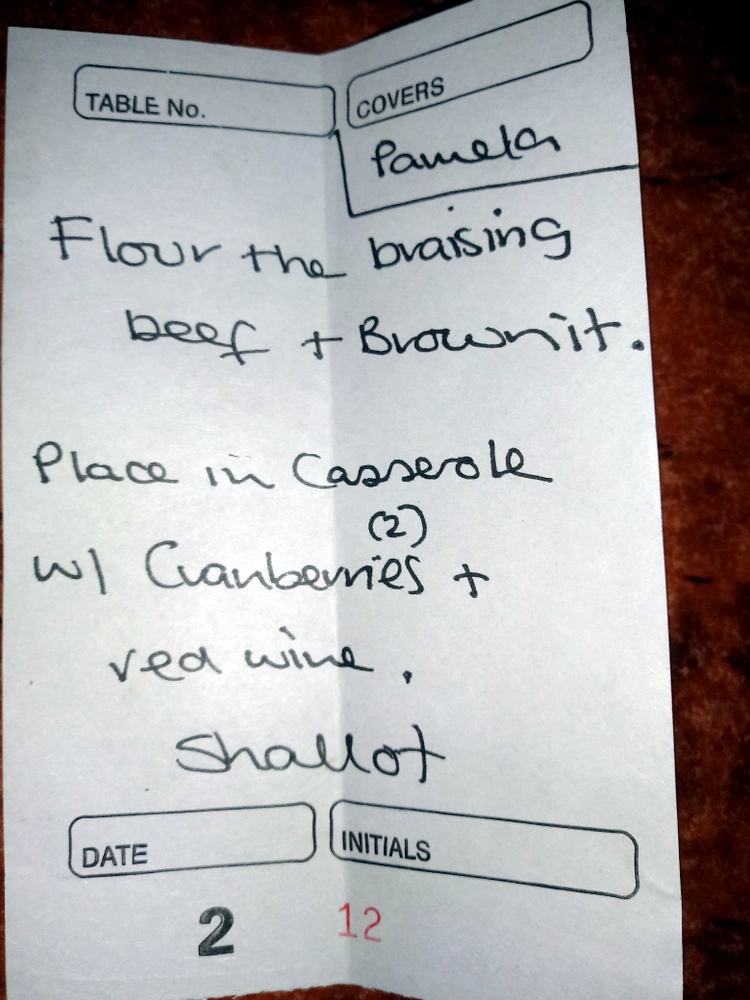 TABLE No.
COVERS
Pamela
Flour the braising
beef + Brown it.
Place in Casserole
(2)
w/ Cranberries +
red wine.
Shallot
DATE
INITIALS
2 12